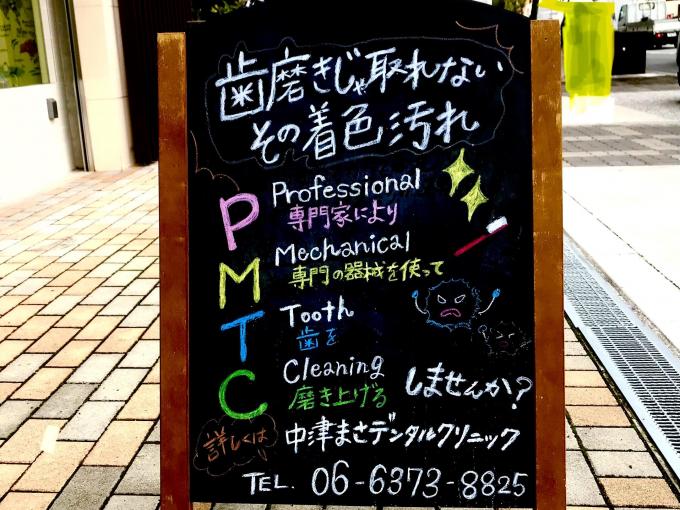 歯磨きじゃ取れない
その着色汚れ
P Professional
専門家により
M Mechanical
専門の器械を使って
T Tooth
歯を
C Cleaning
磨き上げる しませんか?
詳しくは 中津まさデンタルクリニック
TEL. 06-6373-8825